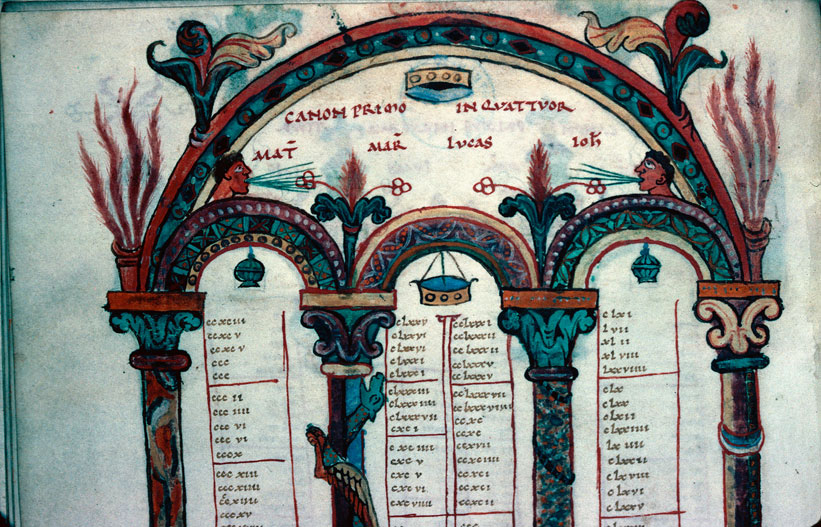 CANON PRIMO IN QUATTVOR
MAT̄ MAR̄ LUCAS IOH̄
ccxciii
ccxc v
ccxc v
ccc
ccc
ccc ii
ccc iiii
ccc vi
ccc x
ccc xiii
ccc xiiii
ccc xv
clxxv
clxxvi
clxxvi
clxxxi
clxxxi
clxxxiii
clxxxiiii
clxxxvii
cxc i
cxc iiii
cxc v
cxc vi
cxc viiii
cclxxx i
cclxxxii
cclxxx ii
cclxxxv
cclxxx v
cclxxxvii
cclxxxviiii
ccxc
ccxc
ccxciiii
ccxci
ccxci
ccxcii
clxi
lvii
xl ii
xl viii
lxxviiii
clx
clxx
clxii
clxxiiii
lx iiii
clxxii
clxviii
clxvi
clxxv